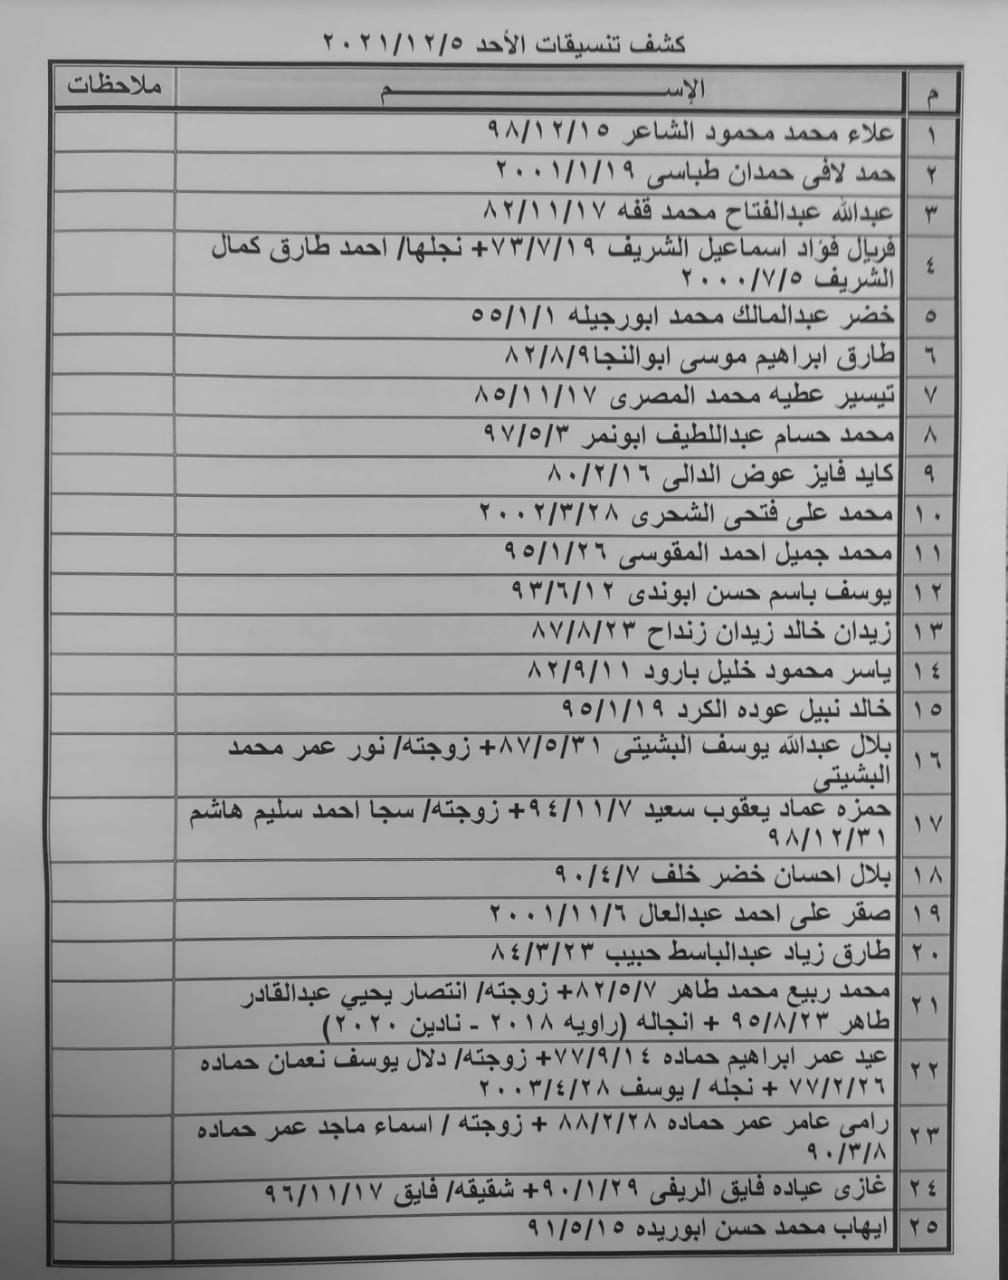 كشف تنسيقات الأحد ٢٠٢١/١٢/٥
م الإســـــــــــــــم ملاحظات
١ علاء محمد محمود الشاعر ٩٨/١٢/١٥
٢ حمد لافى حمدان طباسى ٢٠٠١/١/١٩
٣ عبدالله عبدالفتاح محمد قفه ٨٢/١١/١٧
٤ فريال فؤاد اسماعيل الشريف ٧٣/٧/١٩+ نجلها/ احمد طارق كمال
الشريف ٢٠٠٠/٧/٥
٥ خضر عبدالمالك محمد ابورجيله ٥٥/١/١
٦ طارق ابراهيم موسى ابوالنجا٨٢/٨/٩
٧ تيسير عطيه محمد المصرى ٨٥/١١/١٧
٨ محمد حسام عبداللطيف ابونمر ٩٧/٥/٣
٩ كايد فايز عوض الدالى ٨٠/٢/١٦
١٠ محمد على فتحى الشحرى ٢٠٠٢/٣/٢٨
١١ محمد جميل احمد المقوسى ٩٥/١/٢٦
١٢ يوسف باسم حسن ابوندى ٩٣/٦/١٢
١٣ زيدان خالد زيدان زنداح ٨٧/٨/٢٣
١٤ ياسر محمود خليل بارود ٨٢/٩/١١
١٥ خالد نبيل عوده الكرد ٩٥/١/١٩
١٦ بلال عبدالله يوسف البشيتى ٨٧/٥/٣١+ زوجته/ نور عمر محمد
البشيتى
١٧ حمزه عماد يعقوب سعيد ٩٤/١١/٧+ زوجته/ سجا احمد سليم هاشم
٩٨/١٢/٣١
١٨ بلال احسان خضر خلف ٩٠/٤/٧
١٩ صقر على احمد عبدالعال ٢٠٠١/١١/٦
٢٠ طارق زياد عبدالباسط حبيب ٨٤/٣/٢٣
٢١ محمد ربيع محمد طاهر ٨٢/٥/٧+ زوجته/ انتصار يحيي عبدالقادر
طاهر ٩٥/٨/٢٣ + انجاله (راويه ٢٠١٨ - نادين ٢٠٢٠)
٢٢ عيد عمر ابراهيم حماده ٧٧/٩/١٤+ زوجته/ دلال يوسف نعمان حماده
٧٧/٢/٢٦ + نجله / يوسف ٢٠٠٣/٤/٢٨
٢٣ رامى عامر عمر حماده ٨٨/٢/٢٨ + زوجته / اسماء ماجد عمر حماده
٩٠/٣/٨
٢٤ غازى عياده فايق الريفى ٩٠/١/٢٩+ شقيقه/ فايق ٩٦/١١/١٧
٢٥ ايهاب محمد حسن ابوريده ٩١/٥/١٥